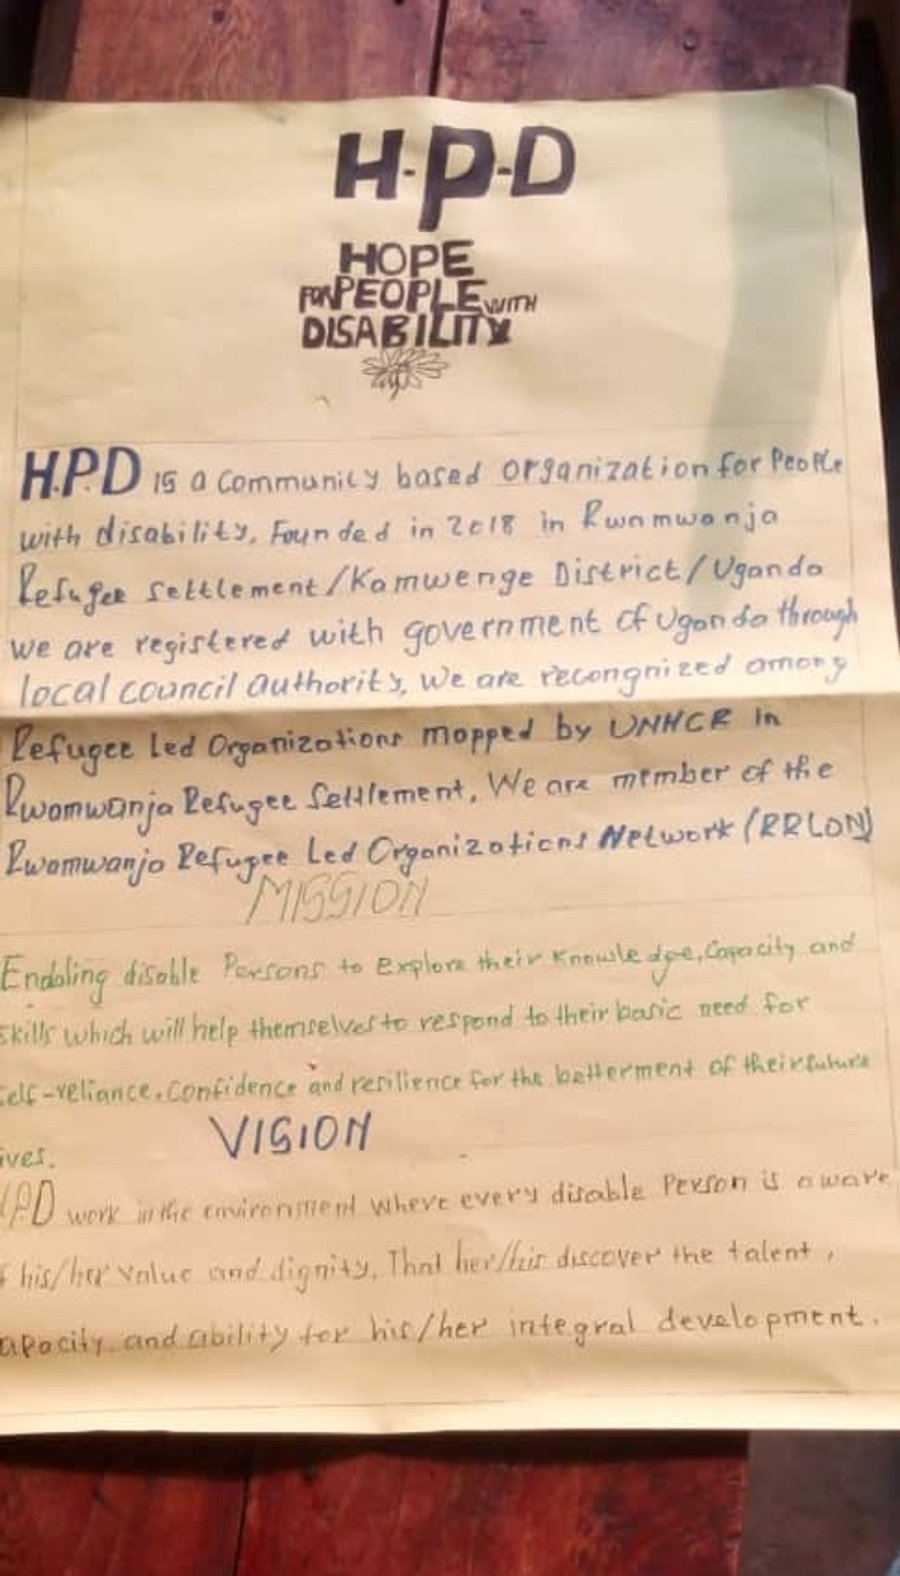 H-P-D
HOPE
FOR PEOPLE WITH
DISABILITY
H.P.D IS a community based organization for People
with disability. Founded in 2018 in Rwamwanja
Refugee settlement/Kamwenge District/Uganda
we are registered with government of Uganda through
local council authority, We are recongnized among
Refugee Led Organizations mapped by UNHCR in
Rwamwanja Refugee Settlement. We are member of the
Rwamwanja Refugee Led Organizations Network (RRLON)
MISSION
Endabling disable Persons to Explore their Knowledge, Capacity and
skills which will help themselves to respond to their basic need for
self-reliance, Confidence and resilience for the betterment of their future
ives.
VISION
HPD work in the environment where every disable Person is aware
his/her value and dignity. That her/his discover the talent,
apacity and ability for his/her integral development.